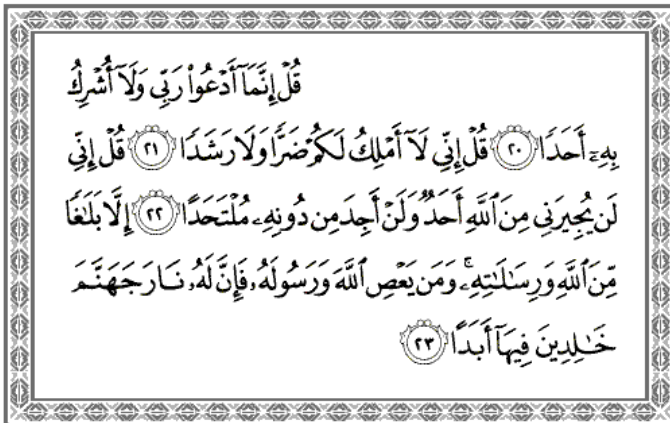 قُلْ إِنَّمَآ أَدْعُوا۟ رَبِّى وَلَآ أُشْرِكُ
بِهِۦٓ أَحَدًا ٢٠ قُلْ إِنِّى لَآ أَمْلِكُ لَكُمْ ضَرًّا وَلَا رَشَدًا ٢١ قُلْ إِنِّى
لَن يُجِيرَنِى مِنَ ٱللَّهِ أَحَدٌ وَلَنْ أَجِدَ مِن دُونِهِۦ مُلْتَحَدًا ٢٢ إِلَّا بَلَـٰغًا
مِّنَ ٱللَّهِ وَرِسَـٰلَـٰتِهِۦ ۚ وَمَن يَعْصِ ٱللَّهَ وَرَسُولَهُۥ فَإِنَّ لَهُۥ نَارَ جَهَنَّمَ
خَـٰلِدِينَ فِيهَآ أَبَدًا ٢٣